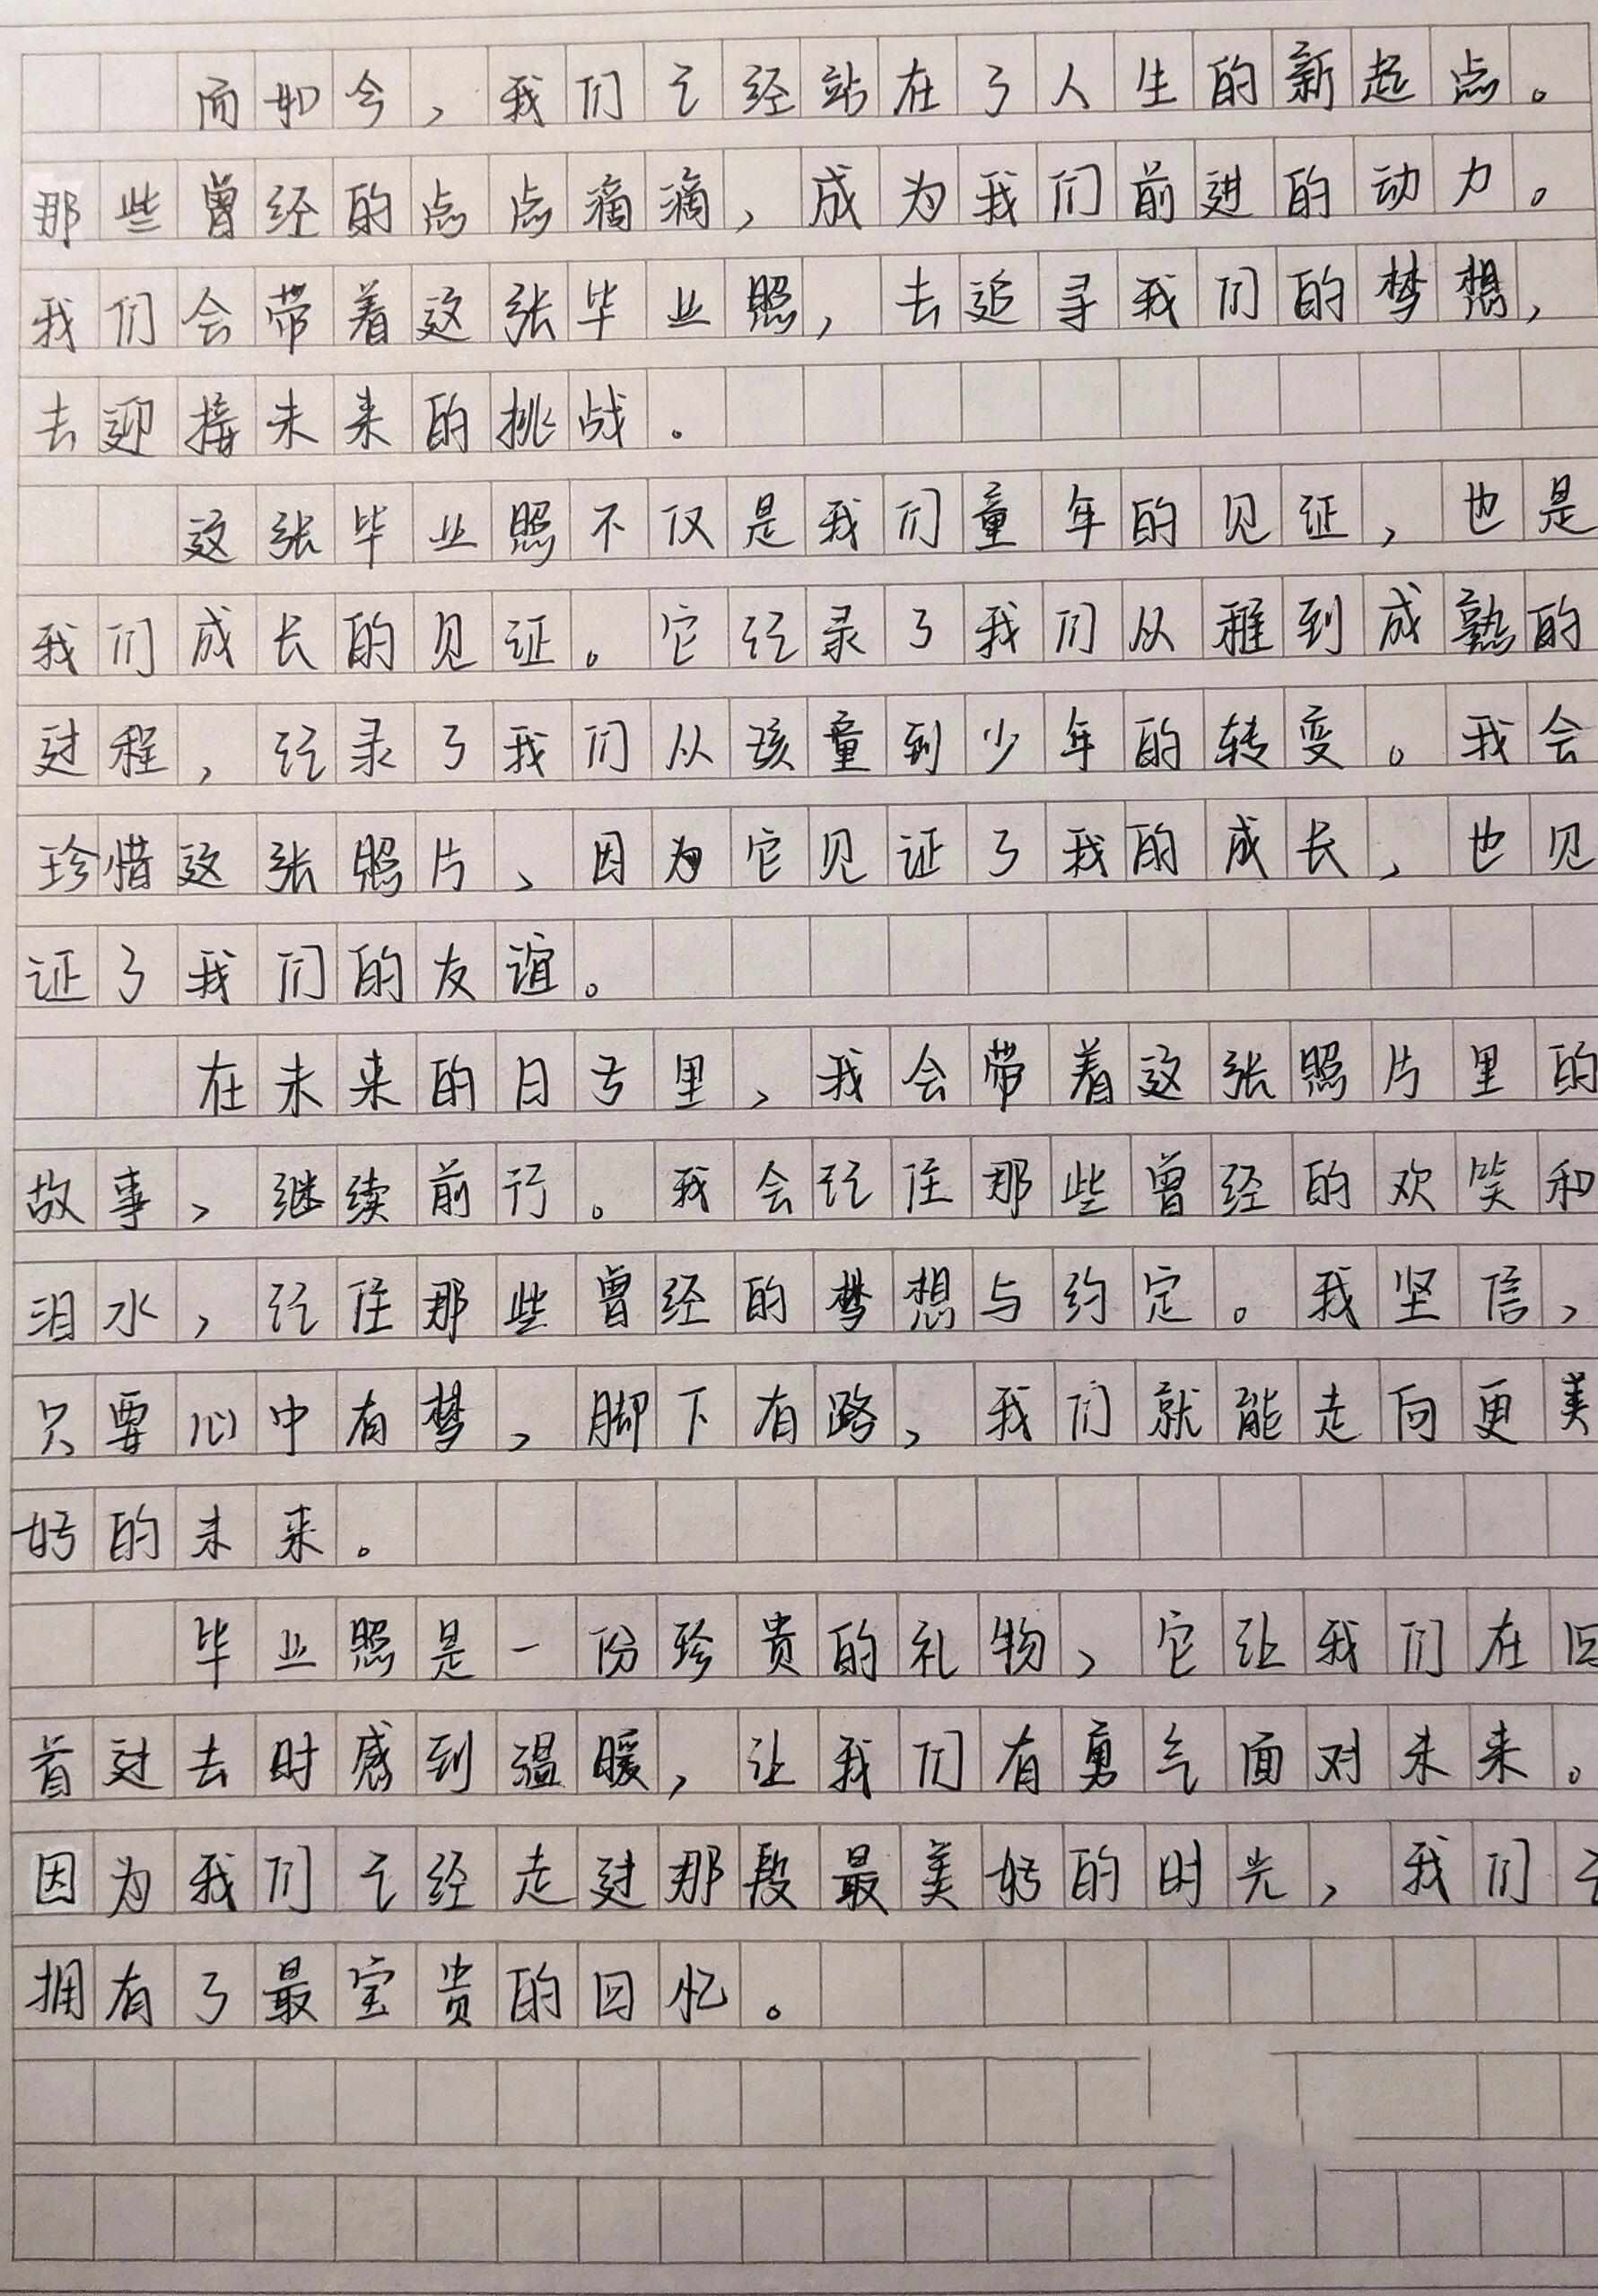 而如今，我们已经站在了人生的新起点。
那些曾经的点点滴滴，成为我们前进的动力。
我们会带着这张毕业照，去追寻我们的梦想，
去迎接未来的挑战。
这张毕业照不仅是我们童年的见证，也是
我们成长的见证。它记录了我们从稚到成熟的
过程，记录了我们从孩童到少年的转变。我会
珍惜这张照片、因为它见证了我的成长，也见
证了我们的友谊。
在未来的日子里，我会带着这张照片里的
故事，继续前行。我会记住那些曾经的欢笑和
泪水，记住那些曾经的梦想与约定。我坚信，
只要心中有梦，脚下有路，我们就能走向更美
好的未来。
毕业照是一份珍贵的礼物，它让我们在回
首过去时感到温暖，让我们有勇气面对未来。
因为我们已经走过那段最美好的时光，我们已
拥有了最宝贵的回忆。